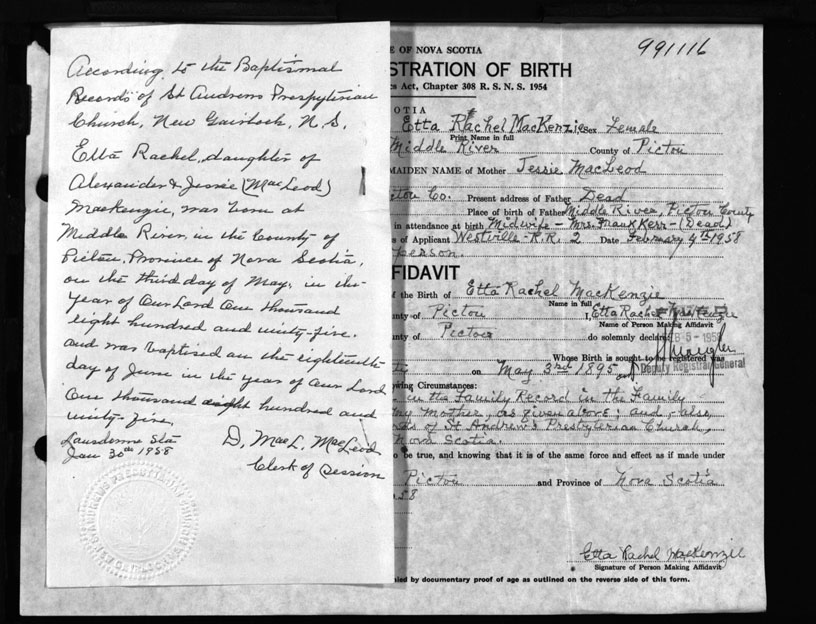 According to the Baptismal
Records of St Andrews Presbyterian
Church, New Gairloch, N.S.
Etta Rachel, daughter of
Alexander & Jessie (MacLeod)
MacKenzie, was born at
Middle River in the County of
Pictou, Province of Nova Scotia,
on the third day of May, in the
year of Our Lord One thousand
eight hundred and ninety-five.
and was baptised on the eighteenth
day of June in the year of Our Lord
One thousand eight hundred and
ninety-five.
Lansdowne Sta
Jan 30th 1958
D. MacL. MacLeod
Clerk of Session
991116
E OF NOVA SCOTIA
STRATION OF BIRTH
s Act, Chapter 308 R. S. N. S. 1954
OTIA
Etta Rachel MacKenzie Sex Female
Print Name in full
Middle River County of Pictou
MAIDEN NAME of Mother Jessie MacLeod
ctou Co. Present address of Father Dead
Place of birth of Father Middle River, Pictou County
in attendance at birth Midwife - Mrs. Frank Kerr - (Dead)
s of Applicant Westville - R.R. 2 Date February 4th 1958
person.
FIDAVIT
f the Birth of Etta Rachel MacKenzie
Name in full
nty of Pictou I, Etta Rachel MacKenzie
Name of Person Making Affidavit
nty of Pictou do solemnly declare
Whose Birth is sought to be registered was
on May 3rd 1895
Deputy Registrar General
wing Circumstances:
in the Family Record in the Family
my Mother, as given above; and, also,
rds of St Andrew's Presbyterian Church,
Nova Scotia.
o be true, and knowing that it is of the same force and effect as if made under
Pictou and Province of Nova Scotia
58
Etta Rachel MacKenzie
Signature of Person Making Affidavit
ied by documentary proof of age as outlined on the reverse side of this form.